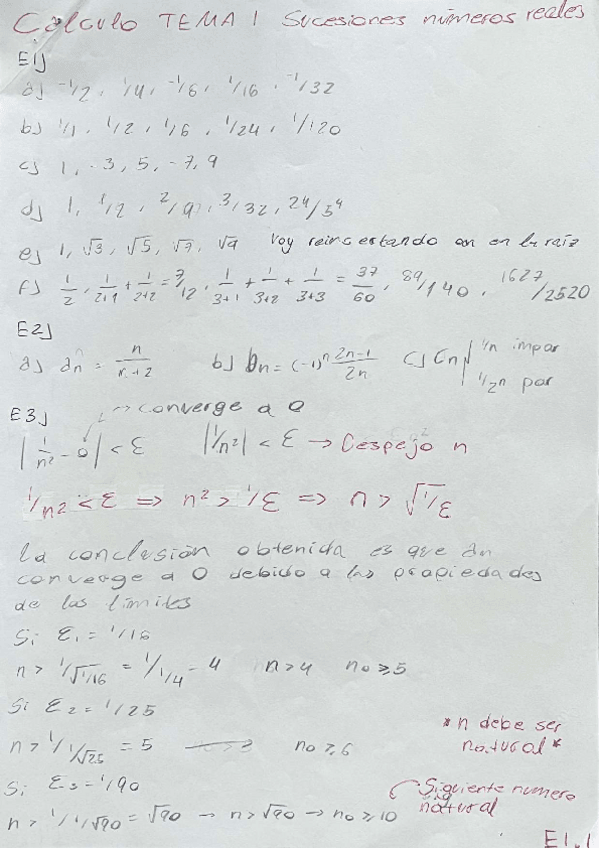 Cálculo TEMA 1 Sucesiones números reales
E1)
a) -1/2, 1/4, -1/6, 1/16, -1/32
b) 1/1, 1/2, 1/6, 1/24, 1/120
c) 1, -3, 5, -7, 9
d) 1, 1/2, 2/9, 3/32, 24/5⁴
e) 1, √3, √5, √7, √9 Voy en en la raíz
f) 1/2, 1/2+1 + 1/2+2 = 7/12, 1/3+1 + 1/3+2 + 1/3+3 = 37/60, 89/140, 1627/2520
E2)
a) an = n/n+2 b) bn = (-1)ⁿ 2n-1/2n c) Cn | 1/n impar
1/2n par
E3) → converge a 0
|1/n² - 0| < ε |1/n²| < ε → Despejo n
1/n² < ε ⇒ n² > 1/ε ⇒ n > √1/ε
la conclusión obtenida es que an
converge a 0 debido a las propiedades
de los límites
Si ε₁ = 1/16
n > 1/√1/16 = 1/1/4 - 4 n > 4 n₀ ≥ 5
Si ε₂ = 1/25
n > 1/1/√25 = 5 n₀ ≥ 6
* n debe ser
natural *
Si ε₃ = 1/90
n > 1/1/√90 = √90 → n > √90 → n₀ ≥ 10
Siguiente numero
natural
E1.1